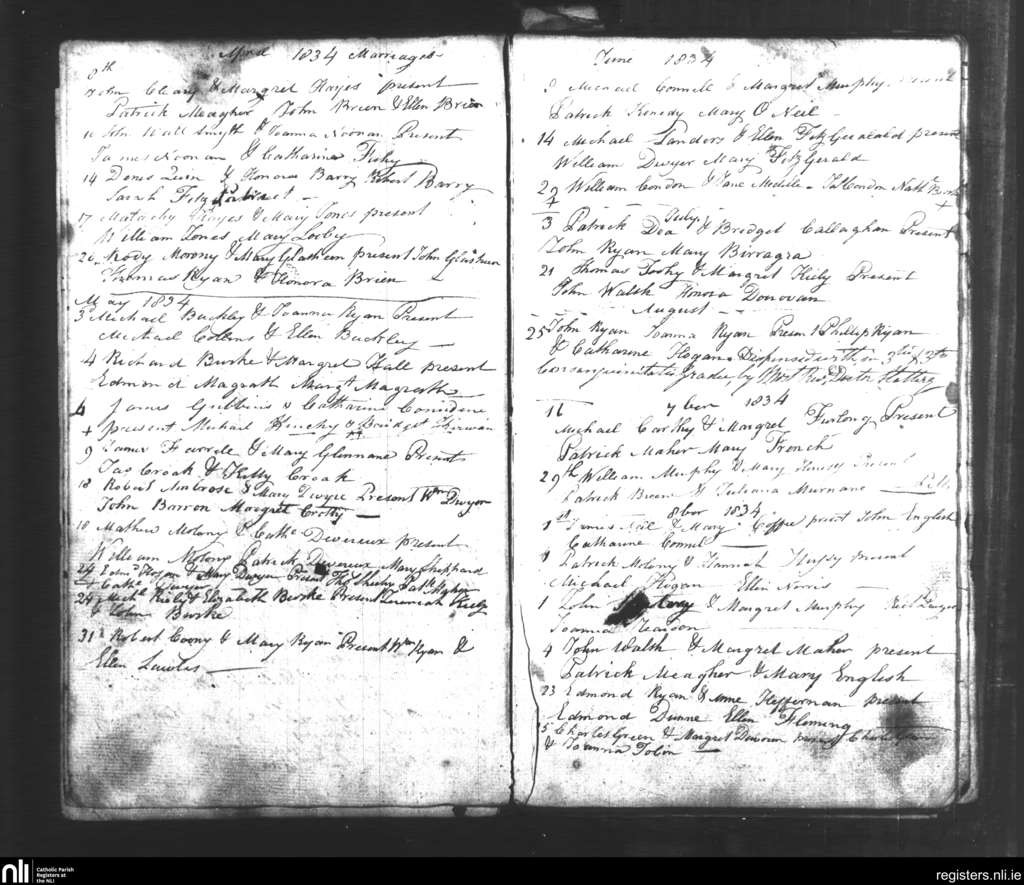 April 1834 Marriages
8th
John Cleary & Margret Hayes present
Patrick Meagher John Brien & Ellen Brien
11 John Wall Smyth & Joanna Noonan Present
James Noonan & Catharine
14 Denis Quin & Honora Barry Robert Barry
Sarah
17 Malachy Hayes & Mary Jones present
William Jones Mary Looby
20 Rody Morony & Mary present John
Thomas Ryan & Honora Brien
May 1834
3 Michael Buckley & Joanna Ryan Present
Michael Collins & Ellen Buckley
4 Richard Burke & Margret Hall present
Edmond Magrath Margt Magrath
6 James Gubbins & Catharine Considine
+ present Michael & Bridget
9 James & Mary Present
Jas Croak & Kitty Croak
18 Robert Ambrose & Mary Dwyre Present Wm Dwyer
John Barron Margret Crotty
10 Mathew Molony & Cathe Devereux present
William Molony Patrick Devereux Mary Sheppard
24 Edmd Hogan & Mary Dwyer Present Thos Sheehy
+ Cathe Dwyer
24 Michl Kiely & Elizabeth Burke Present Jeremiah Kiely
& John Burke
31 Robert Coony & Mary Ryan Present Wm Ryan &
Ellen Lawles
June 1834
8 Michael Connell & Margret Murphy
Patrick Kenedy Mary O Neil
14 Michael Landers & Ellen FitzGerald present
William Dwyer Mary FitzGerald
29 William Condon & Jane Pat Condon
+
July
3 Patrick Dea & Bridget Callaghan Present
John Ryan Mary Birragra
21 Thomas & Margret Kiely Present
John Walsh Honora Donovan
August
25 John Ryan Joanna Ryan Present Phillip Ryan
& Catharine Hogan Dispensed with in
Consanguinitatis by Most Revd Doctor Slattery
11 7ber 1834
Michael Carthy & Margret Furlong Present
Patrick Maher Mary French
29th William Murphy & Mary Present
Patrick Breen & Juliana Murnane
8ber 1834
1st James Neil & Mary John English
Catharine
Patrick Molony & Hannah present
Michael Hogan Ellen Norris
1 John & Margret Murphy
Joanna
4 John Walsh & Margret Maher present
Patrick Meagher & Mary English
23 Edmond Ryan & Anne Heffernan present
Edmond Dunne Ellen Fleming
Charles Green & Margret Charles
& Joanna Tobin
nli
Catholic Parish
Registers at
the NLI
registers.nli.ie